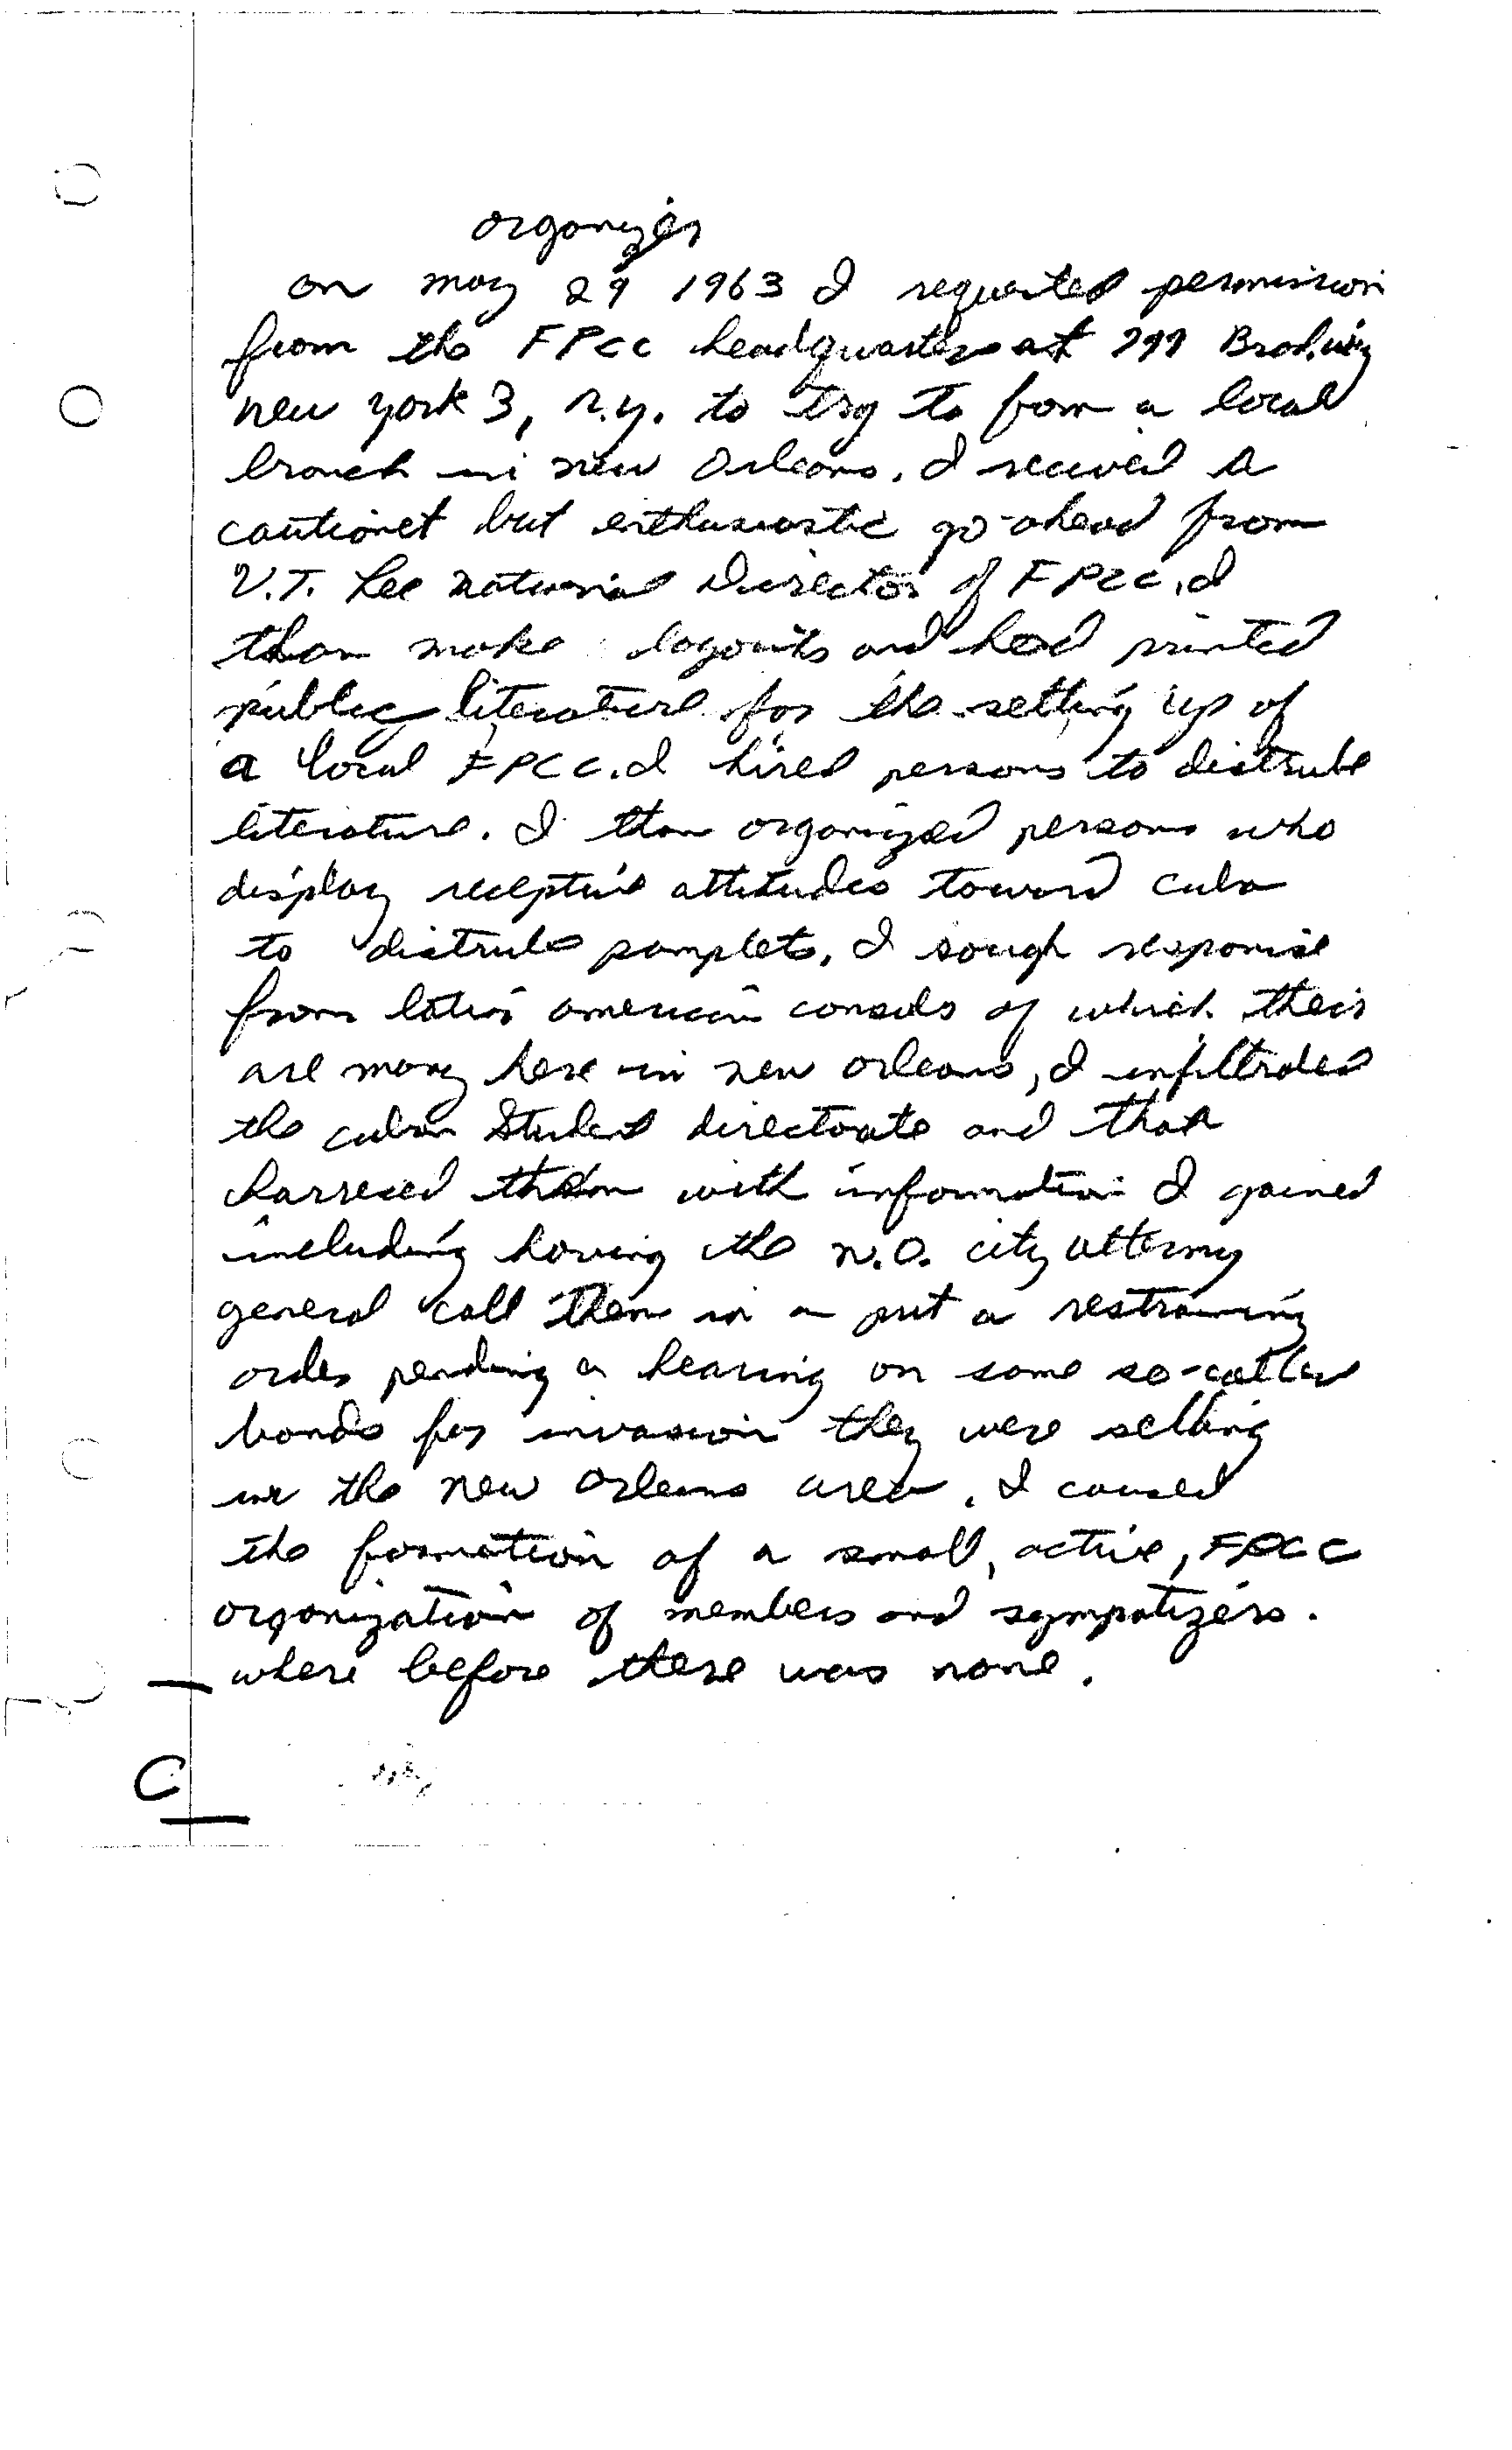 organizer
on may 29 1963 I requested permission
from the FPCC headquarters at 799 Brodway
new york 3, n.y. to try to form a local
branch in new Orleans. I received a
cautionet but enthusiastic go-ahead from
V.T. Lee National Director of FPCC. I
than make layouts and had printed
public literature for the setting up of
a local FPCC. I hired persons to distrube
literature. I than organized persons who
display receptive attitudes toward cuba
to distrube pamplets. I sough response
from latin american consuls of which their
are many here in new orleans, I infiltrated
the cuban Student directorate and than
harresed them with information I gained
including having the N.O. city atterny
general call them in a put a restraining
order pending a hearing on some so-called
bonds for invasion they were selling
in the new orleans area. I caused
the formation of a small, active, FPCC
organization of members and sympatizers.
where before there was none.
C